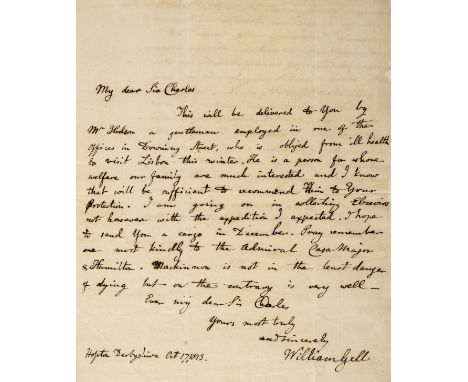 My dear Sir Charles
This will be delivered to You by
Mr Hodson a gentleman employed in one of the
Offices in Downing Street, who is obliged from ill health
to visit Lisbon this winter. He is a person for whose
welfare our family are much interested and I know
that will be sufficient to recommend Him to Your
Protection. I am going on in collecting Elzevirs
not however with the expedition I expected. I hope
to send You a cargo in December. Pray remember
me most kindly to the Admiral Casa Major
& Hamilton. Mackinnon is not in the least danger
of dying but on the contrary is very well—
Ever my dear Sir Charles
Yours most truly
and sincerely
William Gell
Hopton Derbyshire Oct 17, 1813.